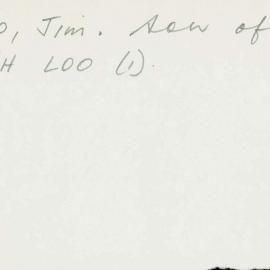 O, Jim. Son of
H LOO (1).